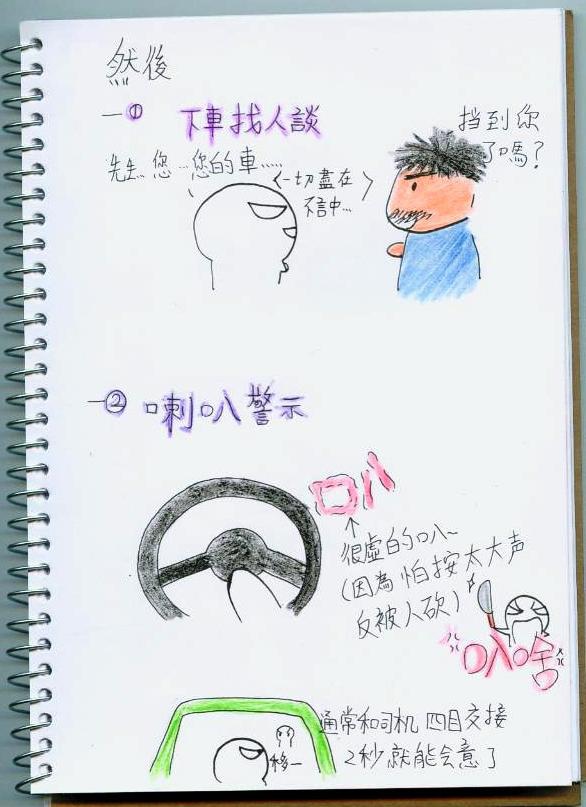 然後
一① 下車找人談
先生… 您…您的車……
一切盡在
不言中…
挡到你
了嗎?
一② 喇叭警示
叭
很虛的叭~
(因為怕按太大声
反被人砍)
叭啥
移一
通常和司机四目交接
2秒就能会意了